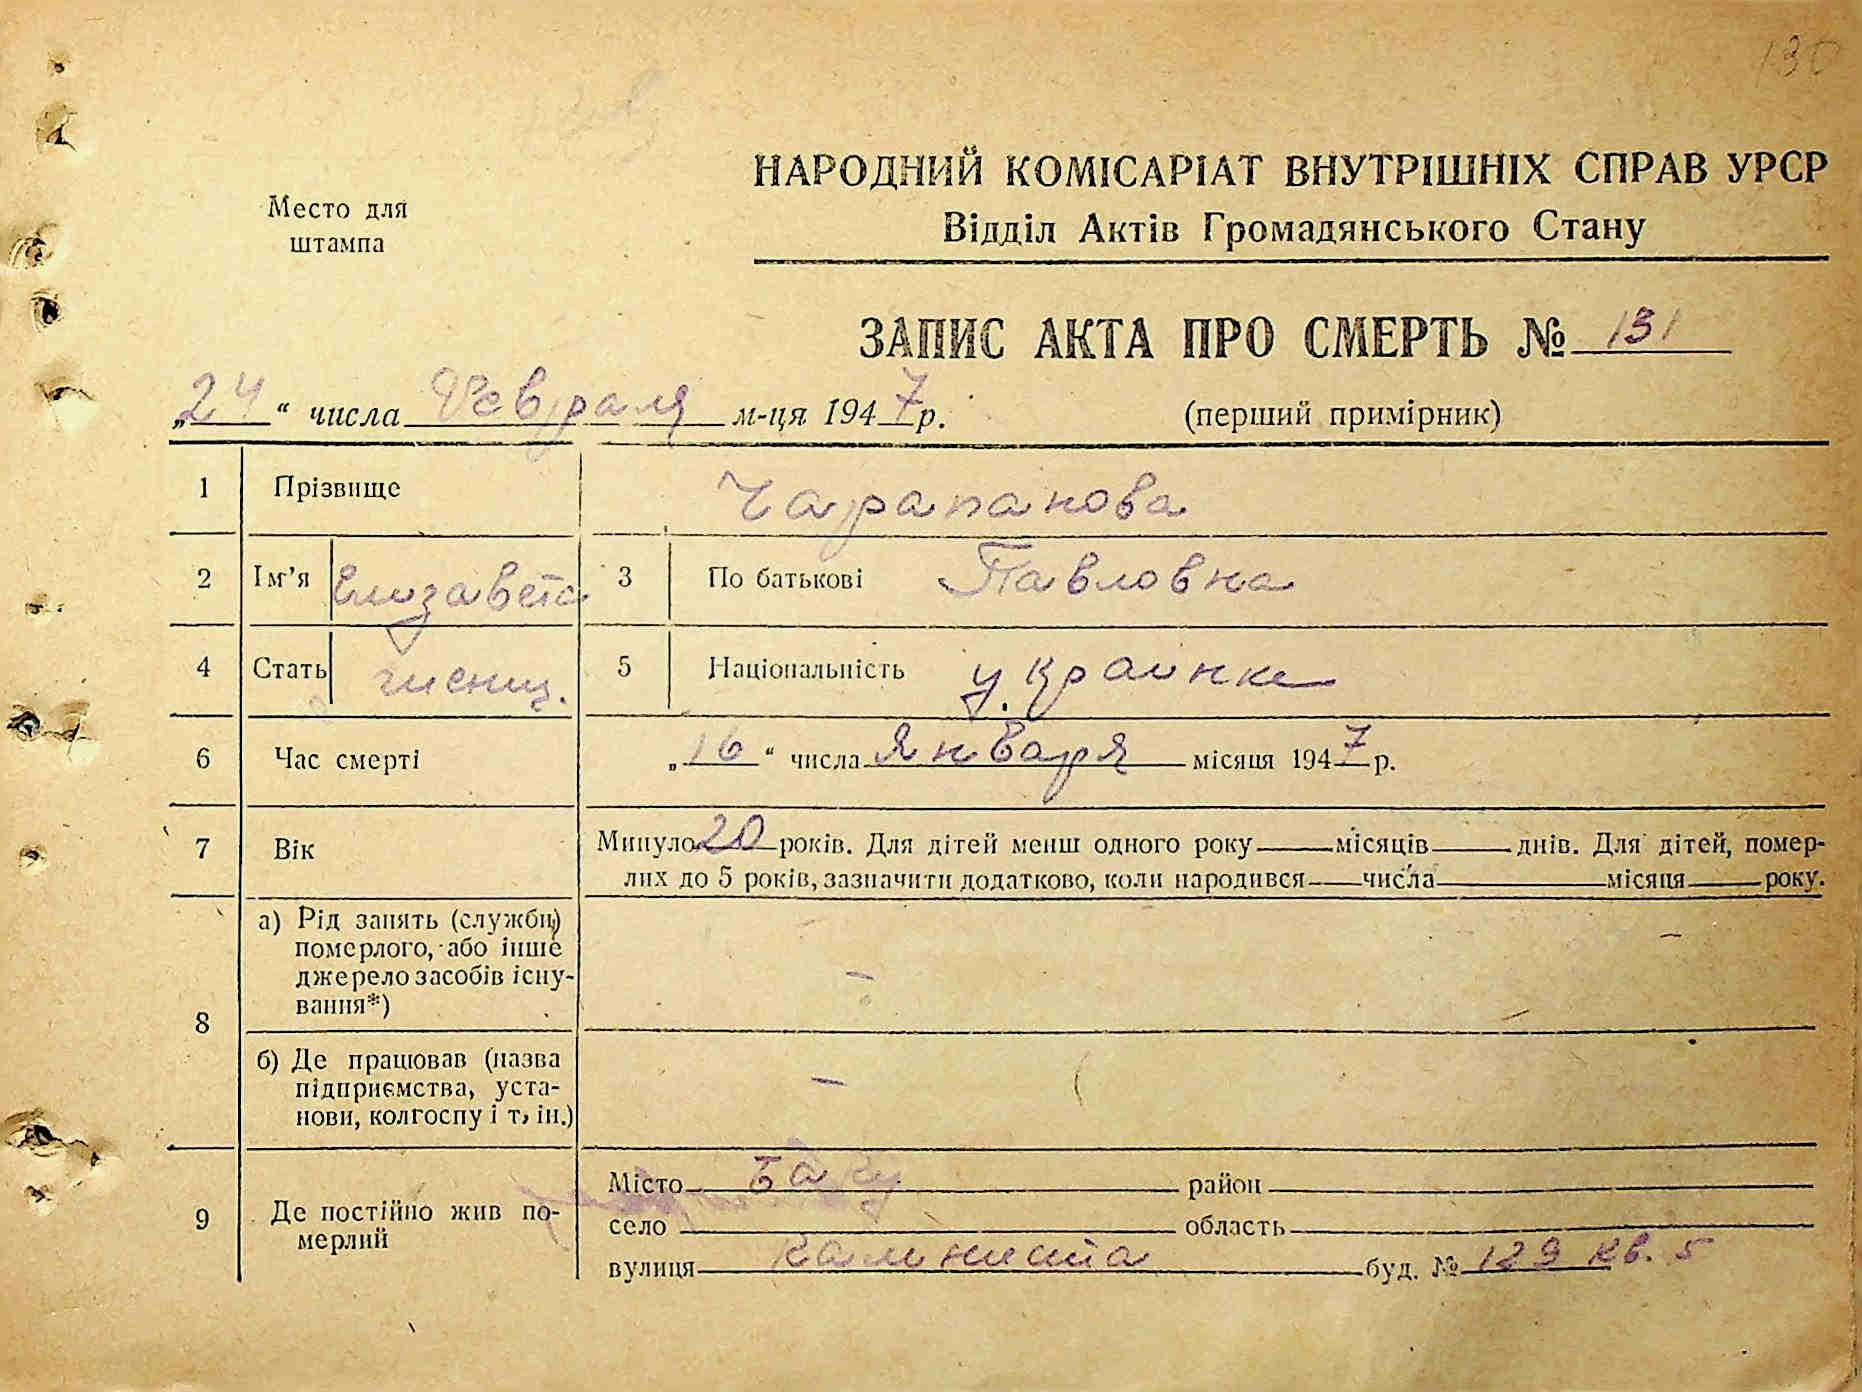 130
Место для
штампа
НАРОДНИЙ КОМІСАРІАТ ВНУТРІШНІХ СПРАВ УРСР
Відділ Актів Громадянського Стану
ЗАПИС АКТА ПРО СМЕРТЬ № 131
„24“ числа Февраля м-ця 1947 р.
(перший примірник)
1 Прізвище Чарапанова
2 Ім'я Елизавета 3 По батькові Павловна
4 Стать женщ. 5 Національність украинка
6 Час смерті „16“ числа Января місяця 1947 р.
7 Вік Минуло 20 років. Для дітей менш одного року — місяців — днів. Для дітей, помер-
лих до 5 років, зазначити додатково, коли народився — числа — місяця — року.
8 а) Рід занять (служби)
померлого, або інше
джерело засобів існу-
вання*) –
б) Де працював (назва
підприємства, уста-
нови, колгоспу і т. ін.) –
9 Де постійно жив по-
мерлий
Місто Баку район
село область
вулиця буд. № 129 кв. 5